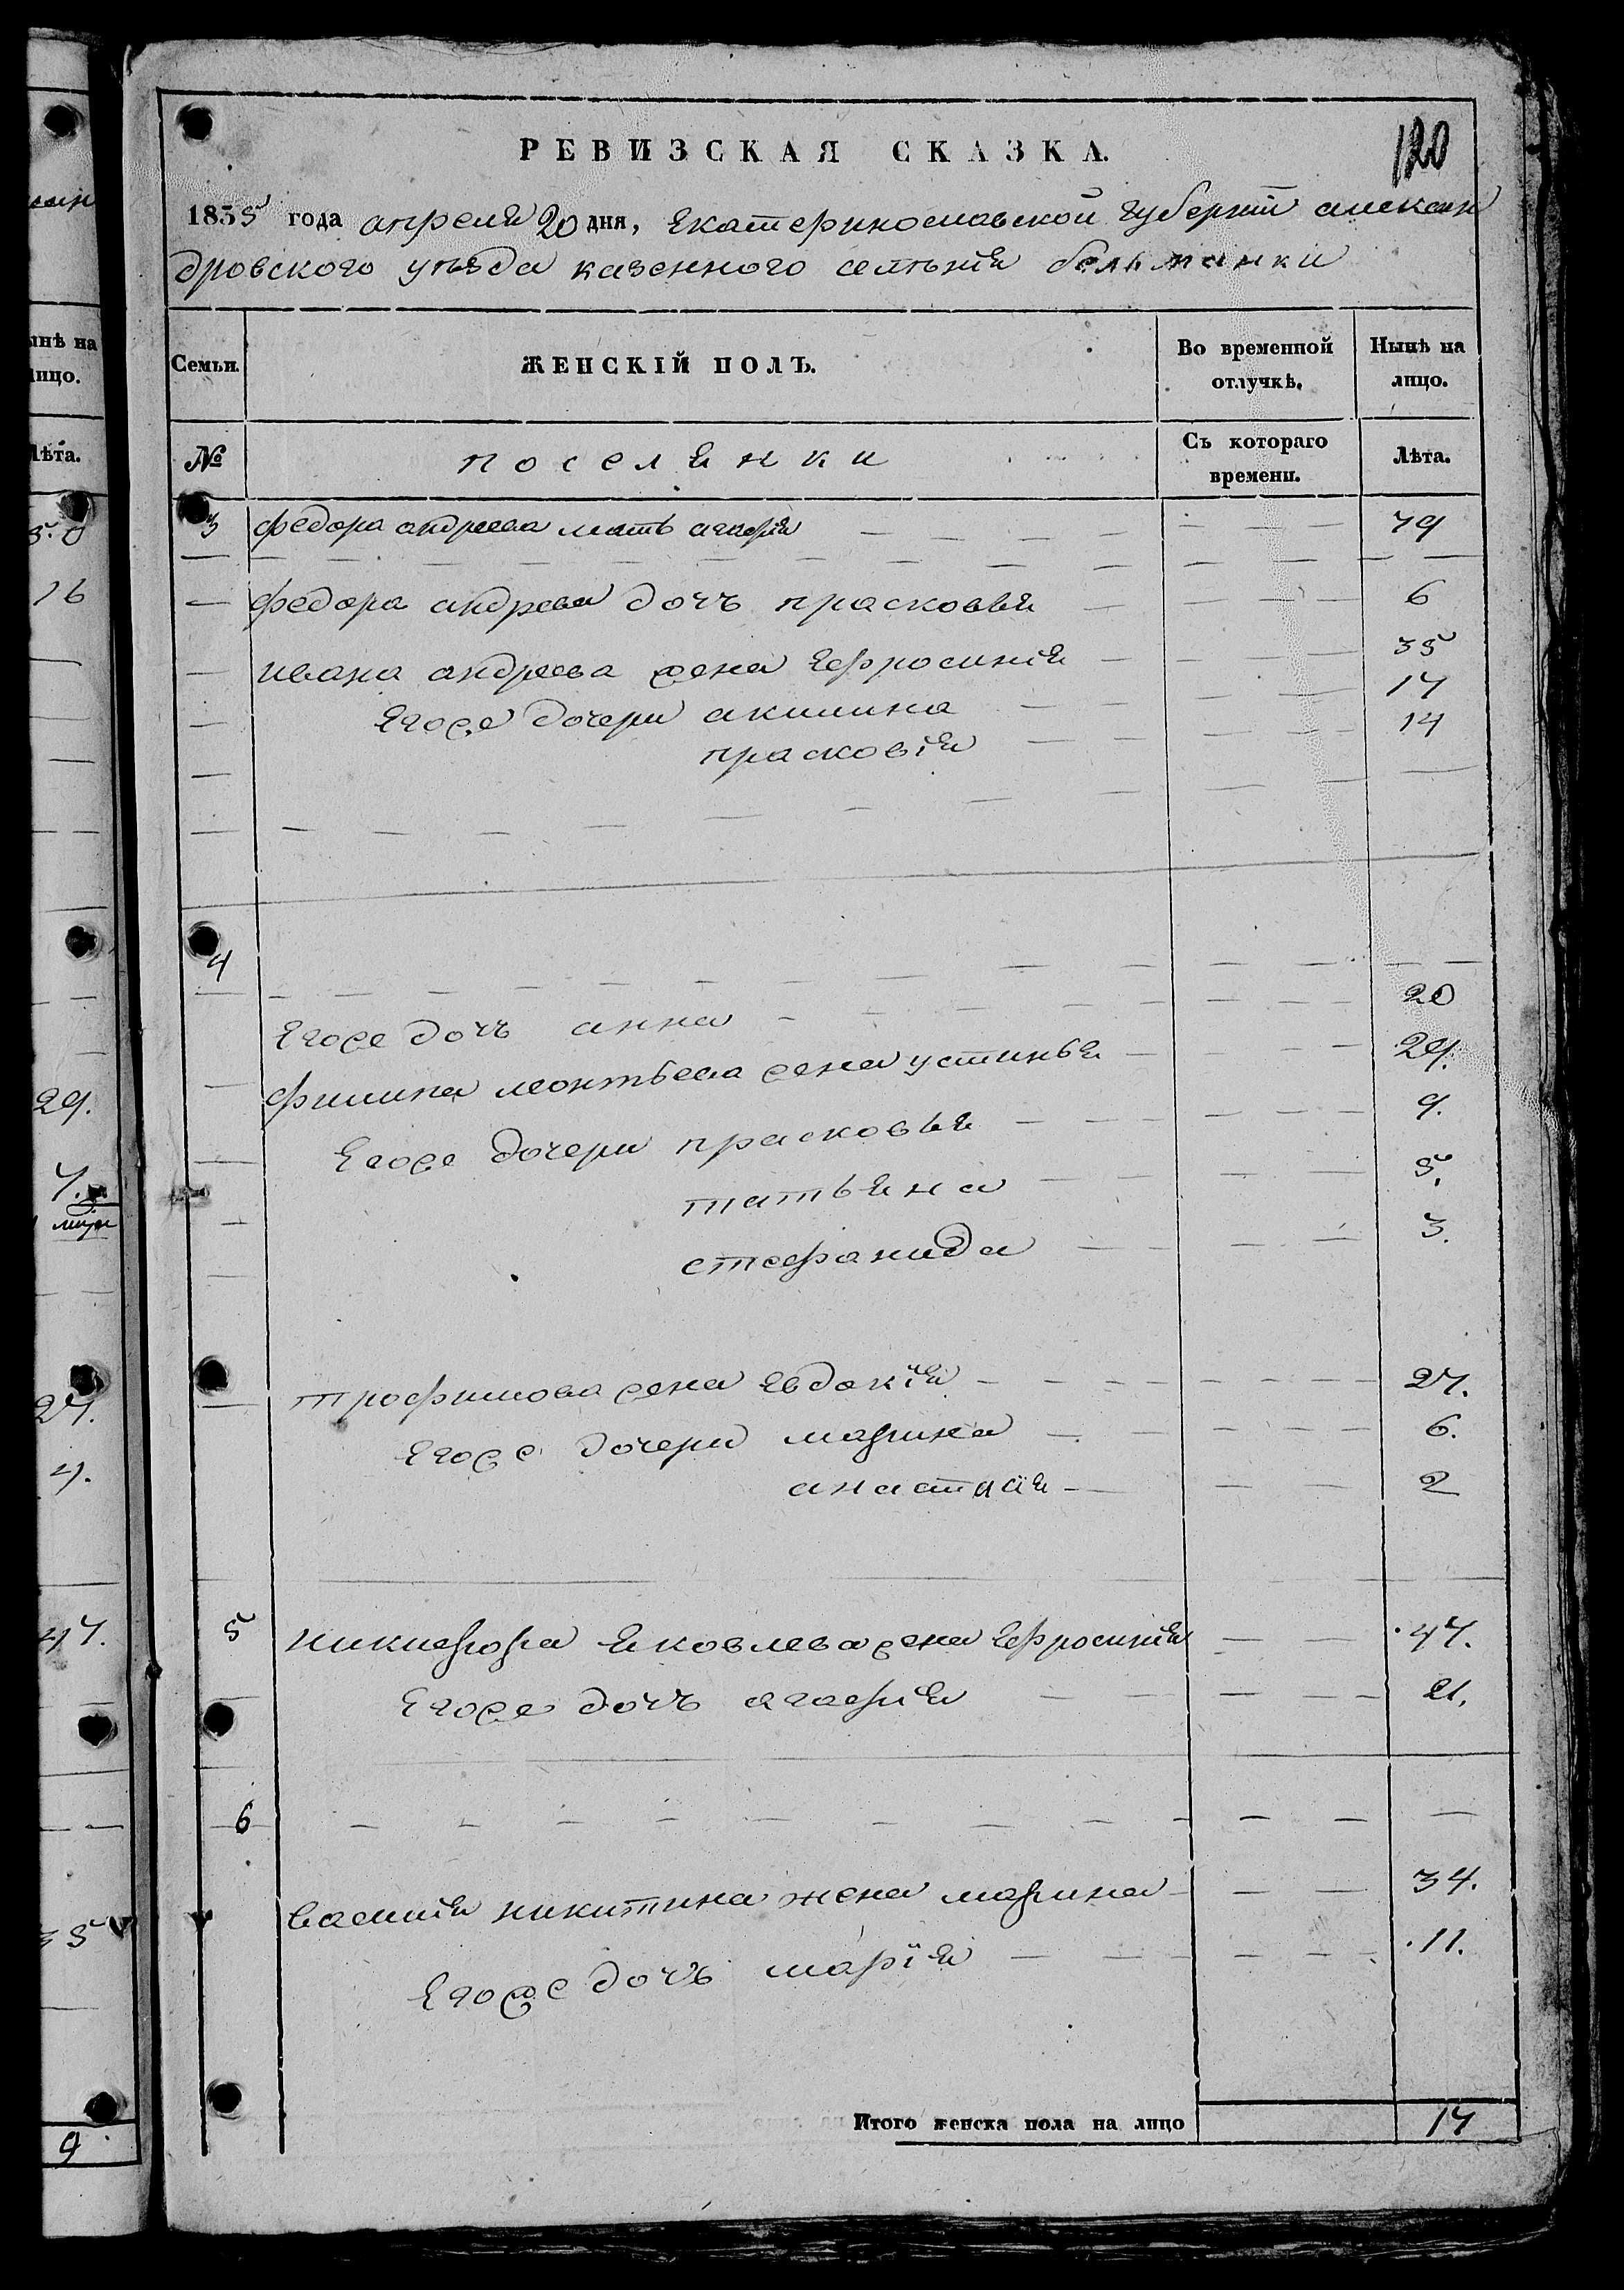 лин
ынѣ на
лицо.
Лѣта.
16
29.
4.
9
120
РЕВИЗСКАЯ СКАЗКА.
1855 года апреля 20 дня, Екатеринославской губернiи алексан
дровского уѣзда казенного селѣнiя бельманки
Семьи. ЖЕНСКІЙ ПОЛЪ. Во временной отлучкѣ. Нынѣ на лицо.
№ поселянки Съ котораго времени. Лѣта.
3 федора андреева мать агафiя 79
федора андреева дочъ прасковья 6
ивана андреева жена Ефросинiя 35
Егоже дочери акилина 17
прасковiя 14
4
Егоже дочъ анна 20
филипа леонтьева жена устинья 29.
Егоже дочери прасковья 9.
татьяна 5.
стефанида 3.
трофимова жена Евдокiя 27.
Егоже дочери марина 6.
анастасiя 2
5 никифора Яковлева жена Ефросинiя 47.
Егоже дочъ агафiя 21.
6
василiя никитина жена марина 34.
Егоже дочъ марiя 11.
Итого женска пола на лицо 17